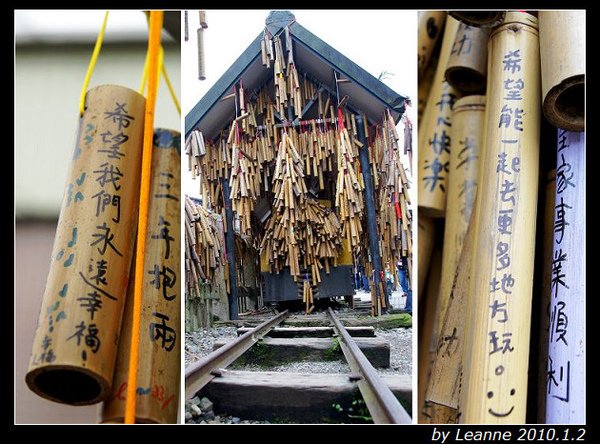 希望我們永遠幸福!
三年抱兩
希望能一起去更多地方玩。
心快樂
家事業順利
by Leanne 2010.1.2